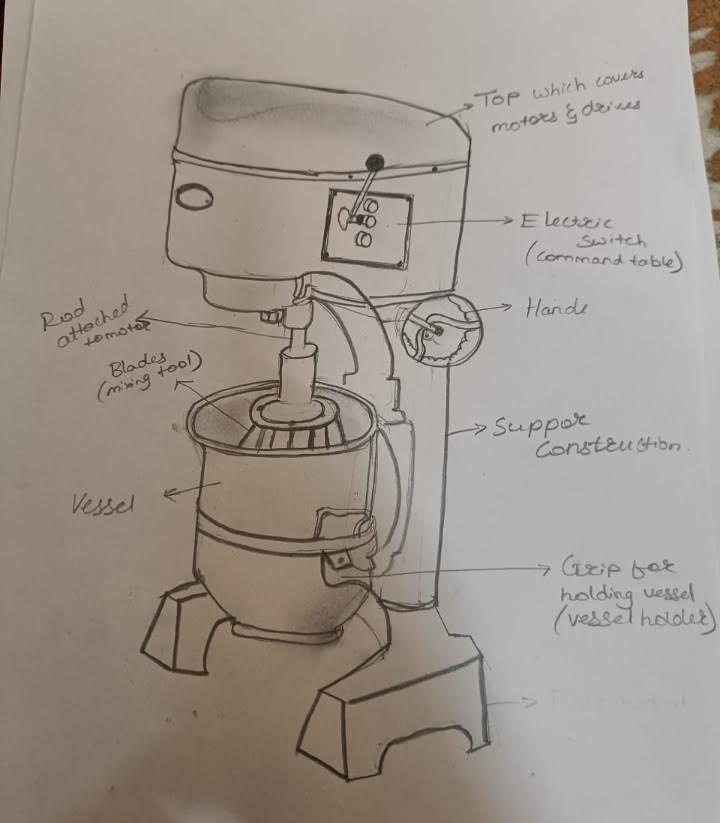 Top which covers
motors & drives
Electric
Switch
(command table)
Hande
Rod
attached
to motor
Blades
(mixing tool)
Suppor
Construction.
Vessel
Grip for
holding vessel
(vessel holder)